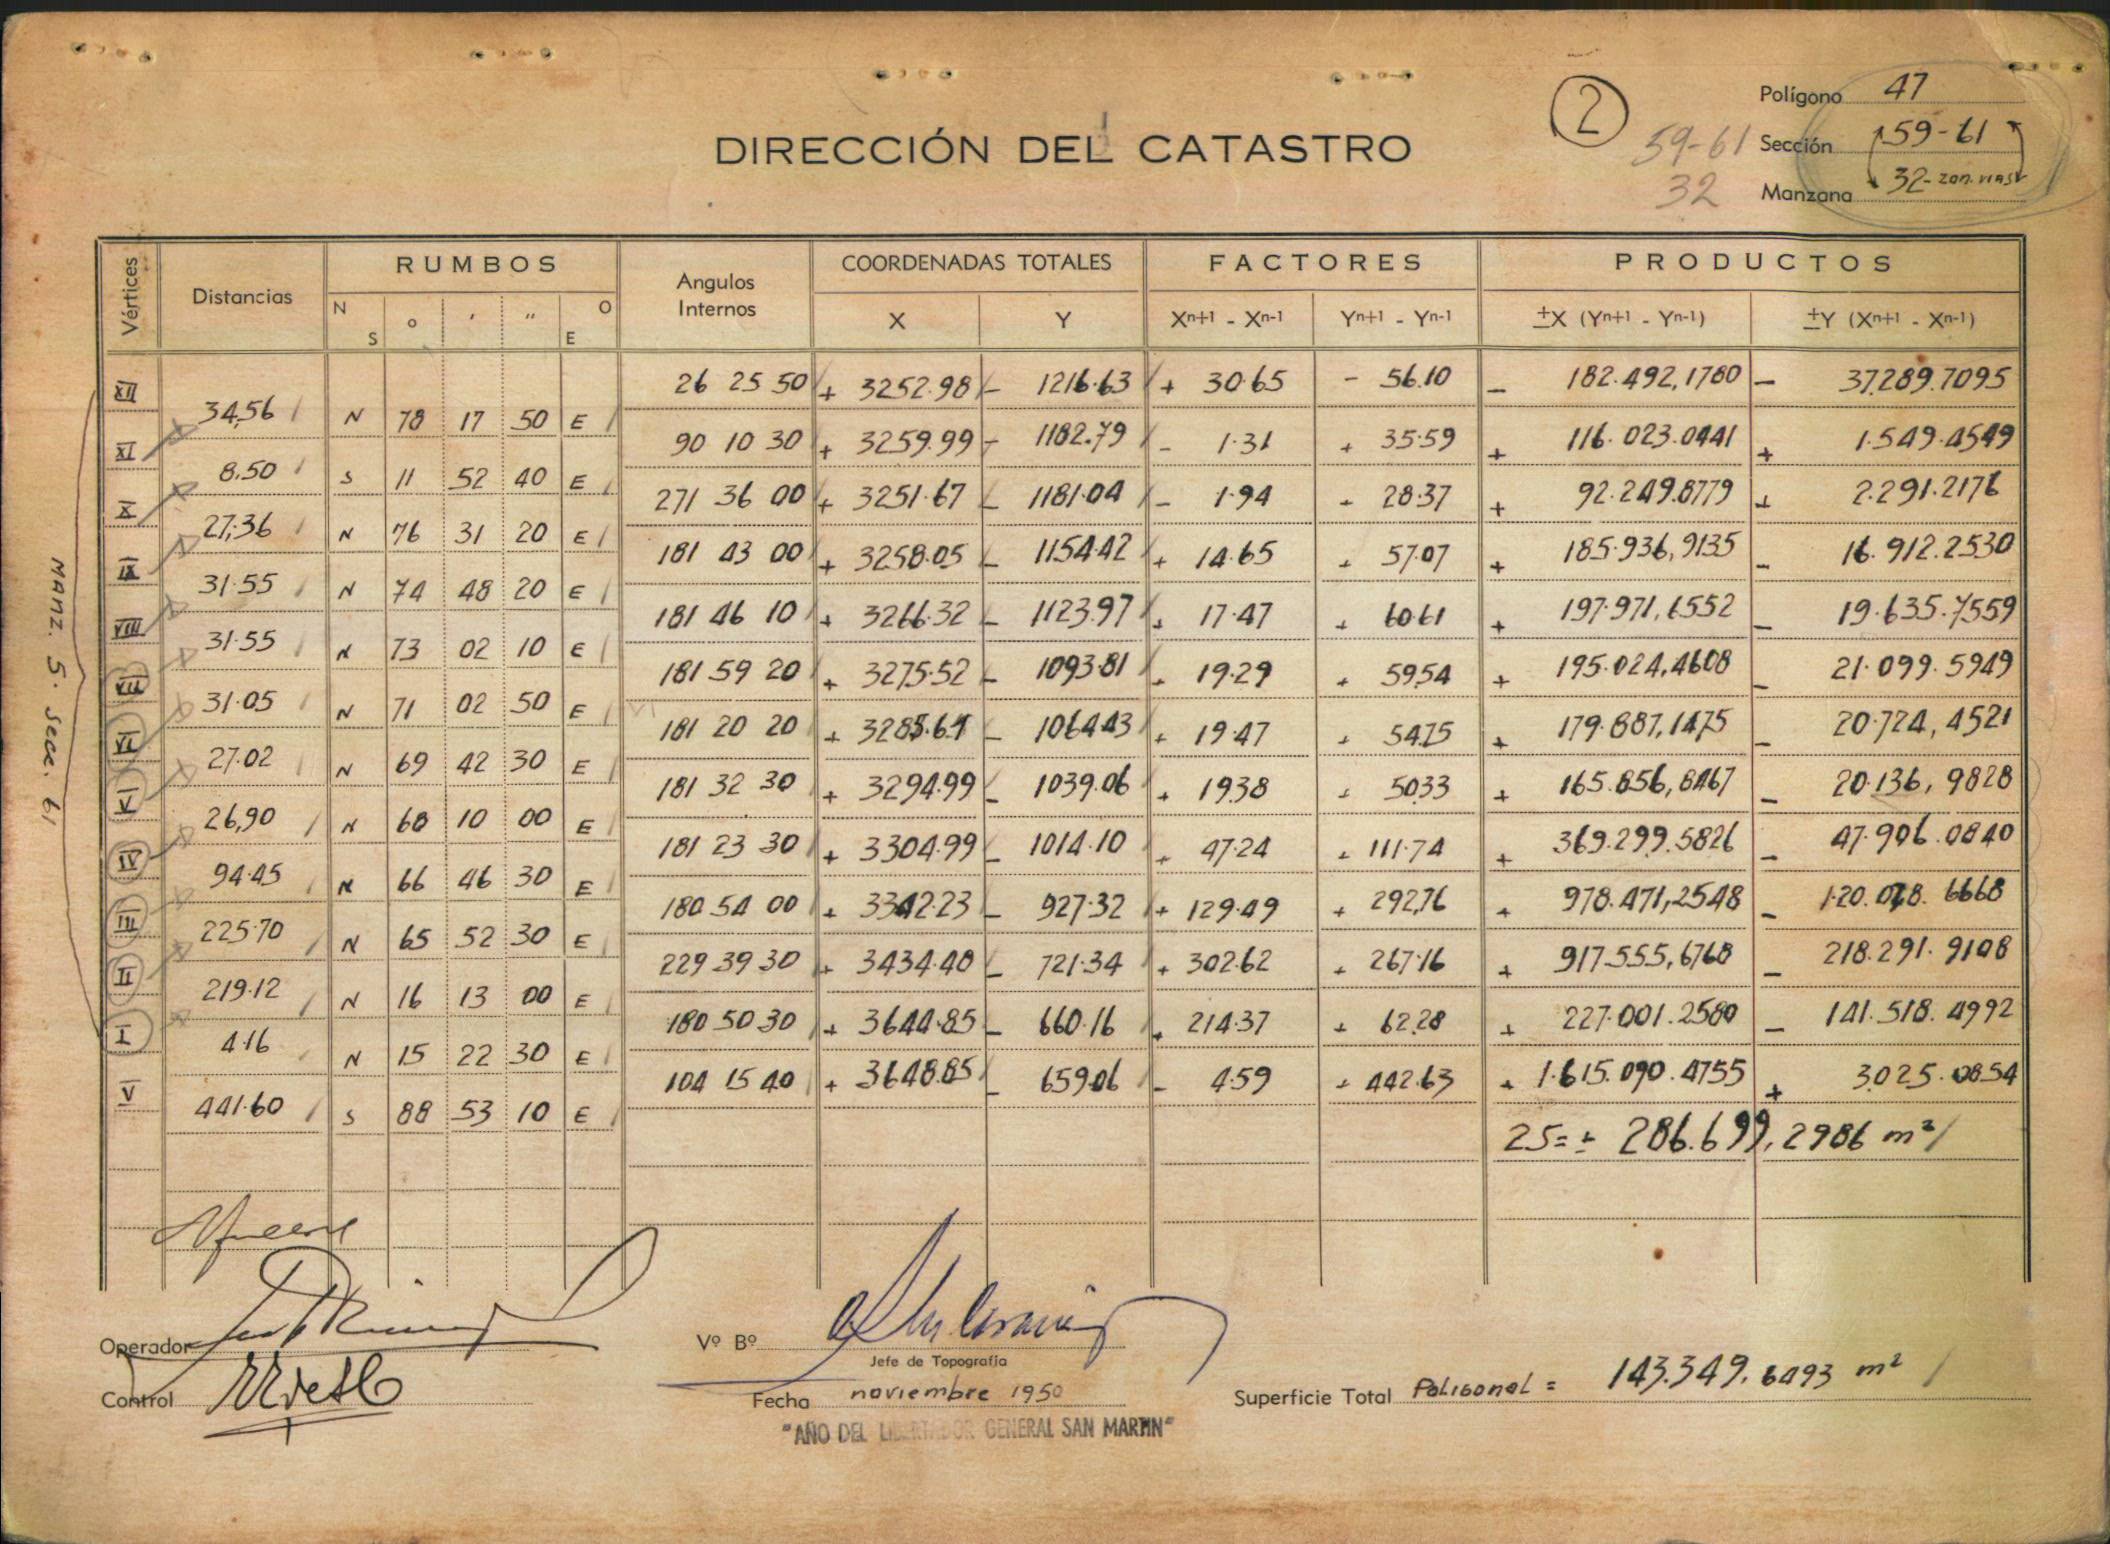 2
Polígono 47
DIRECCIÓN DEL CATASTRO
59-61 Sección 59-61
32 Manzana 32- ZON. VIAS
Vértices Distancias RUMBOS Angulos Internos COORDENADAS TOTALES FACTORES PRODUCTOS
N S o ' " O E X Y Xⁿ⁺¹ - Xⁿ⁻¹ Yⁿ⁺¹ - Yⁿ⁻¹ ±X (Yⁿ⁺¹ - Yⁿ⁻¹) ±Y (Xⁿ⁺¹ - Xⁿ⁻¹)
XII 26 25 50 + 3252.98 - 1216.63 + 30.65 - 56.10 - 182.492,1780 - 37.289.7095
34,56 N 78 17 50 E
XI 90 10 30 + 3259.99 - 1182.79 - 1.31 + 35.59 + 116.023.0441 + 1.549.4549
8.50 S 11 52 40 E
X 271 36 00 + 3251.67 - 1181.04 - 1.94 + 28.37 + 92.249.8779 + 2.291.2176
27,36 N 76 31 20 E
IX 181 43 00 + 3258.05 - 1154.42 + 14.65 + 57.07 + 185.936,9135 - 16.912.2530
31.55 N 74 48 20 E
VIII 181 46 10 + 3266.32 - 1123.97 + 17.47 + 60.61 + 197.971,6552 - 19.635.7559
31.55 N 73 02 10 E
VII 181 59 20 + 3275.52 - 1093.81 + 19.29 + 59.54 + 195.024,4608 - 21.099.5949
31.05 N 71 02 50 E
VI 181 20 20 + 3285.61 - 1064.43 + 19.47 + 54.75 + 179.887,1475 - 20.724,4521
27.02 N 69 42 30 E
V 181 32 30 + 3294.99 - 1039.06 + 19.38 + 50.33 + 165.856,8467 - 20.136,9828
26,90 N 68 10 00 E
IV 181 23 30 + 3304.99 - 1014.10 + 47.24 + 111.74 + 369.299.5826 - 47.906.0840
94.45 N 66 46 30 E
III 180 54 00 + 3342.23 - 927.32 + 129.49 + 292,76 + 978.471,2548 - 120.078.6668
225.70 N 65 52 30 E
II 229 39 30 + 3434.48 - 721.34 + 302.62 + 267.16 + 917.555,6768 - 218.291.9108
219.12 N 16 13 00 E
I 180 50 30 + 3644.85 - 660.16 + 214.37 + 62.28 + 227.001.2580 - 141.518.4992
4.16 N 15 22 30 E
V 104 15 40 + 3648.85 - 659.06 - 4.59 + 442.63 + 1.615.090.4755 + 3.025.0854
441.60 S 88 53 10 E
2S = + 286.699,2986 m²
MANZ. 5. Secc. 61
Operador
Vº Bº
Jefe de Topografía
Control
Fecha noviembre 1950
Superficie Total Poligonal = 143.349.6493 m²
"AÑO DEL LIBERTADOR GENERAL SAN MARTIN"